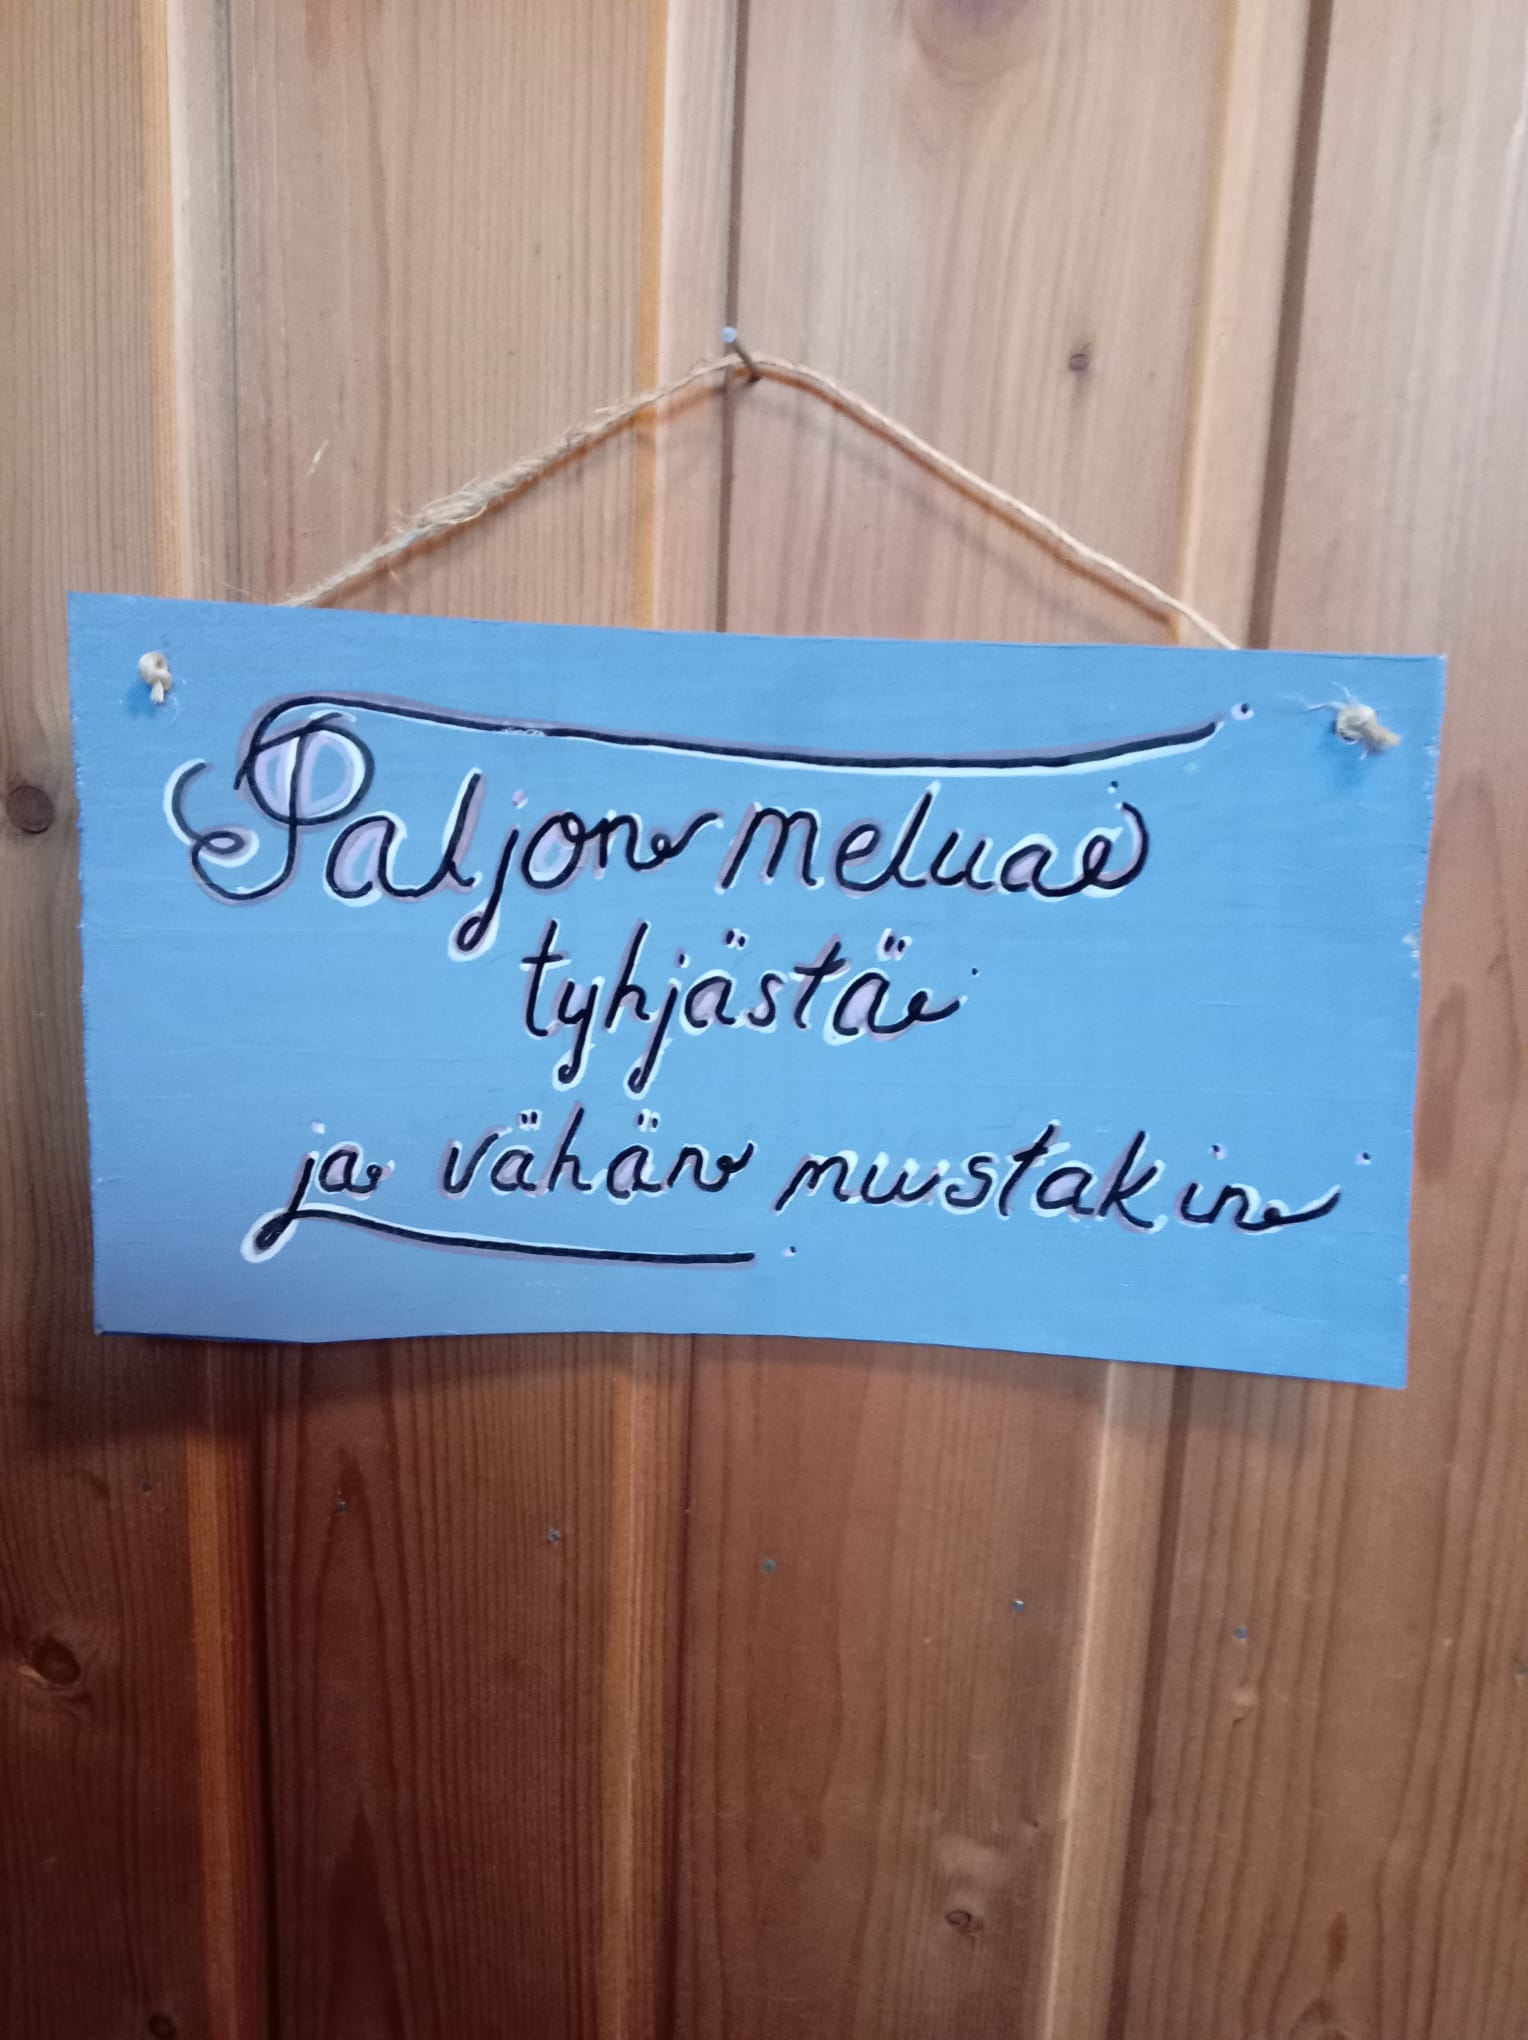 Paljon melua
tyhjästä
ja vähän muustakin